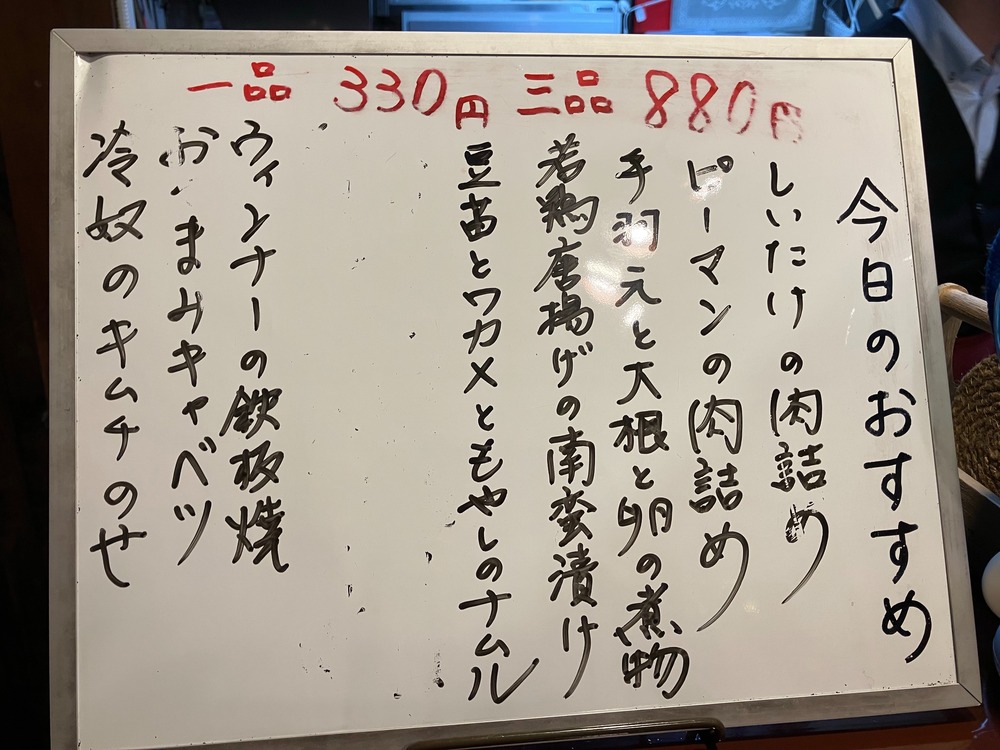 一品 330円 三品 880円
今日のおすすめ
しいたけの肉詰め
ピーマンの肉詰め
手羽元と大根と卵の煮物
若鶏唐揚げの南蛮漬け
豆苗とワカメともやしのナムル
ウィンナーの鉄板焼
おつまみキャベツ
冷奴のキムチのせ